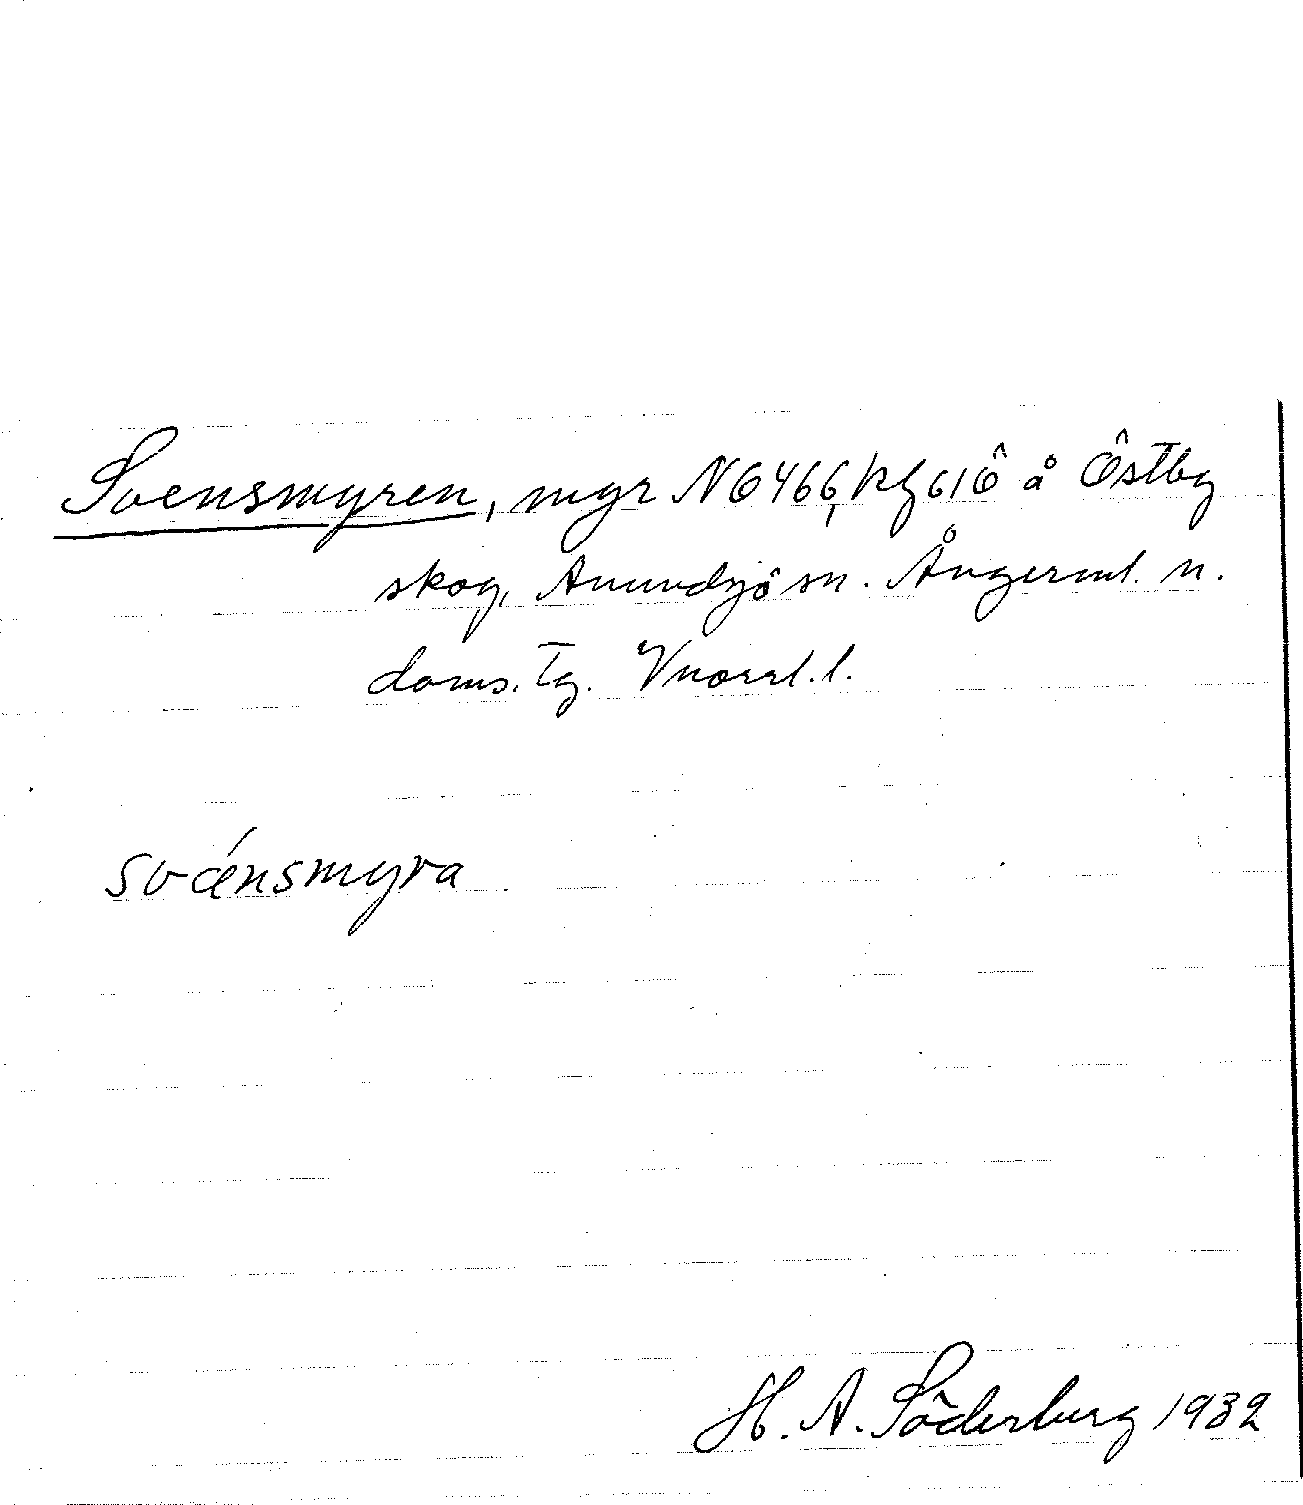 Svensmyren, myr N6466, kf 616 å Östby
skog, Anundsjö sn. Ångerml. n.
doms. tg. Vnorrl. l.
svǽnsmyra
H. A. Söderberg 1932